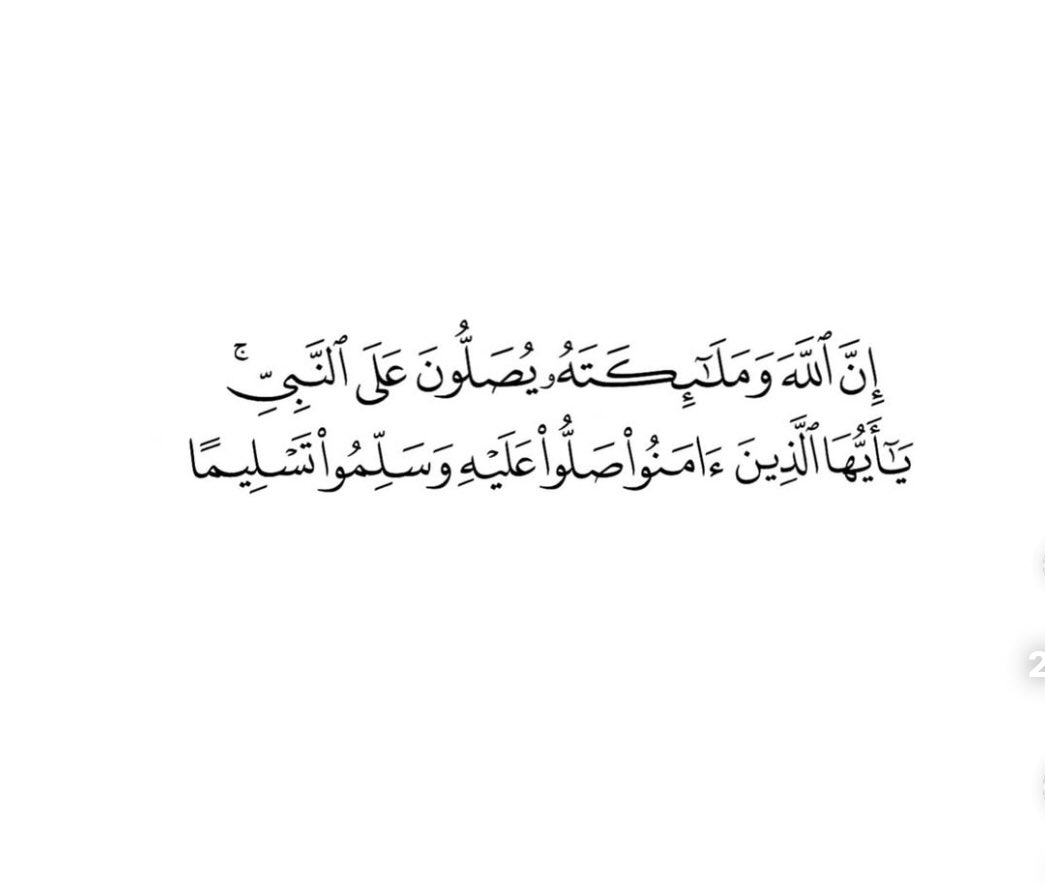 إِنَّ ٱللَّهَ وَمَلَـٰٓئِكَتَهُۥ يُصَلُّونَ عَلَى ٱلنَّبِىِّ ۚ
يَـٰٓأَيُّهَا ٱلَّذِينَ ءَامَنُوا۟ صَلُّوا۟ عَلَيْهِ وَسَلِّمُوا۟ تَسْلِيمًا
2